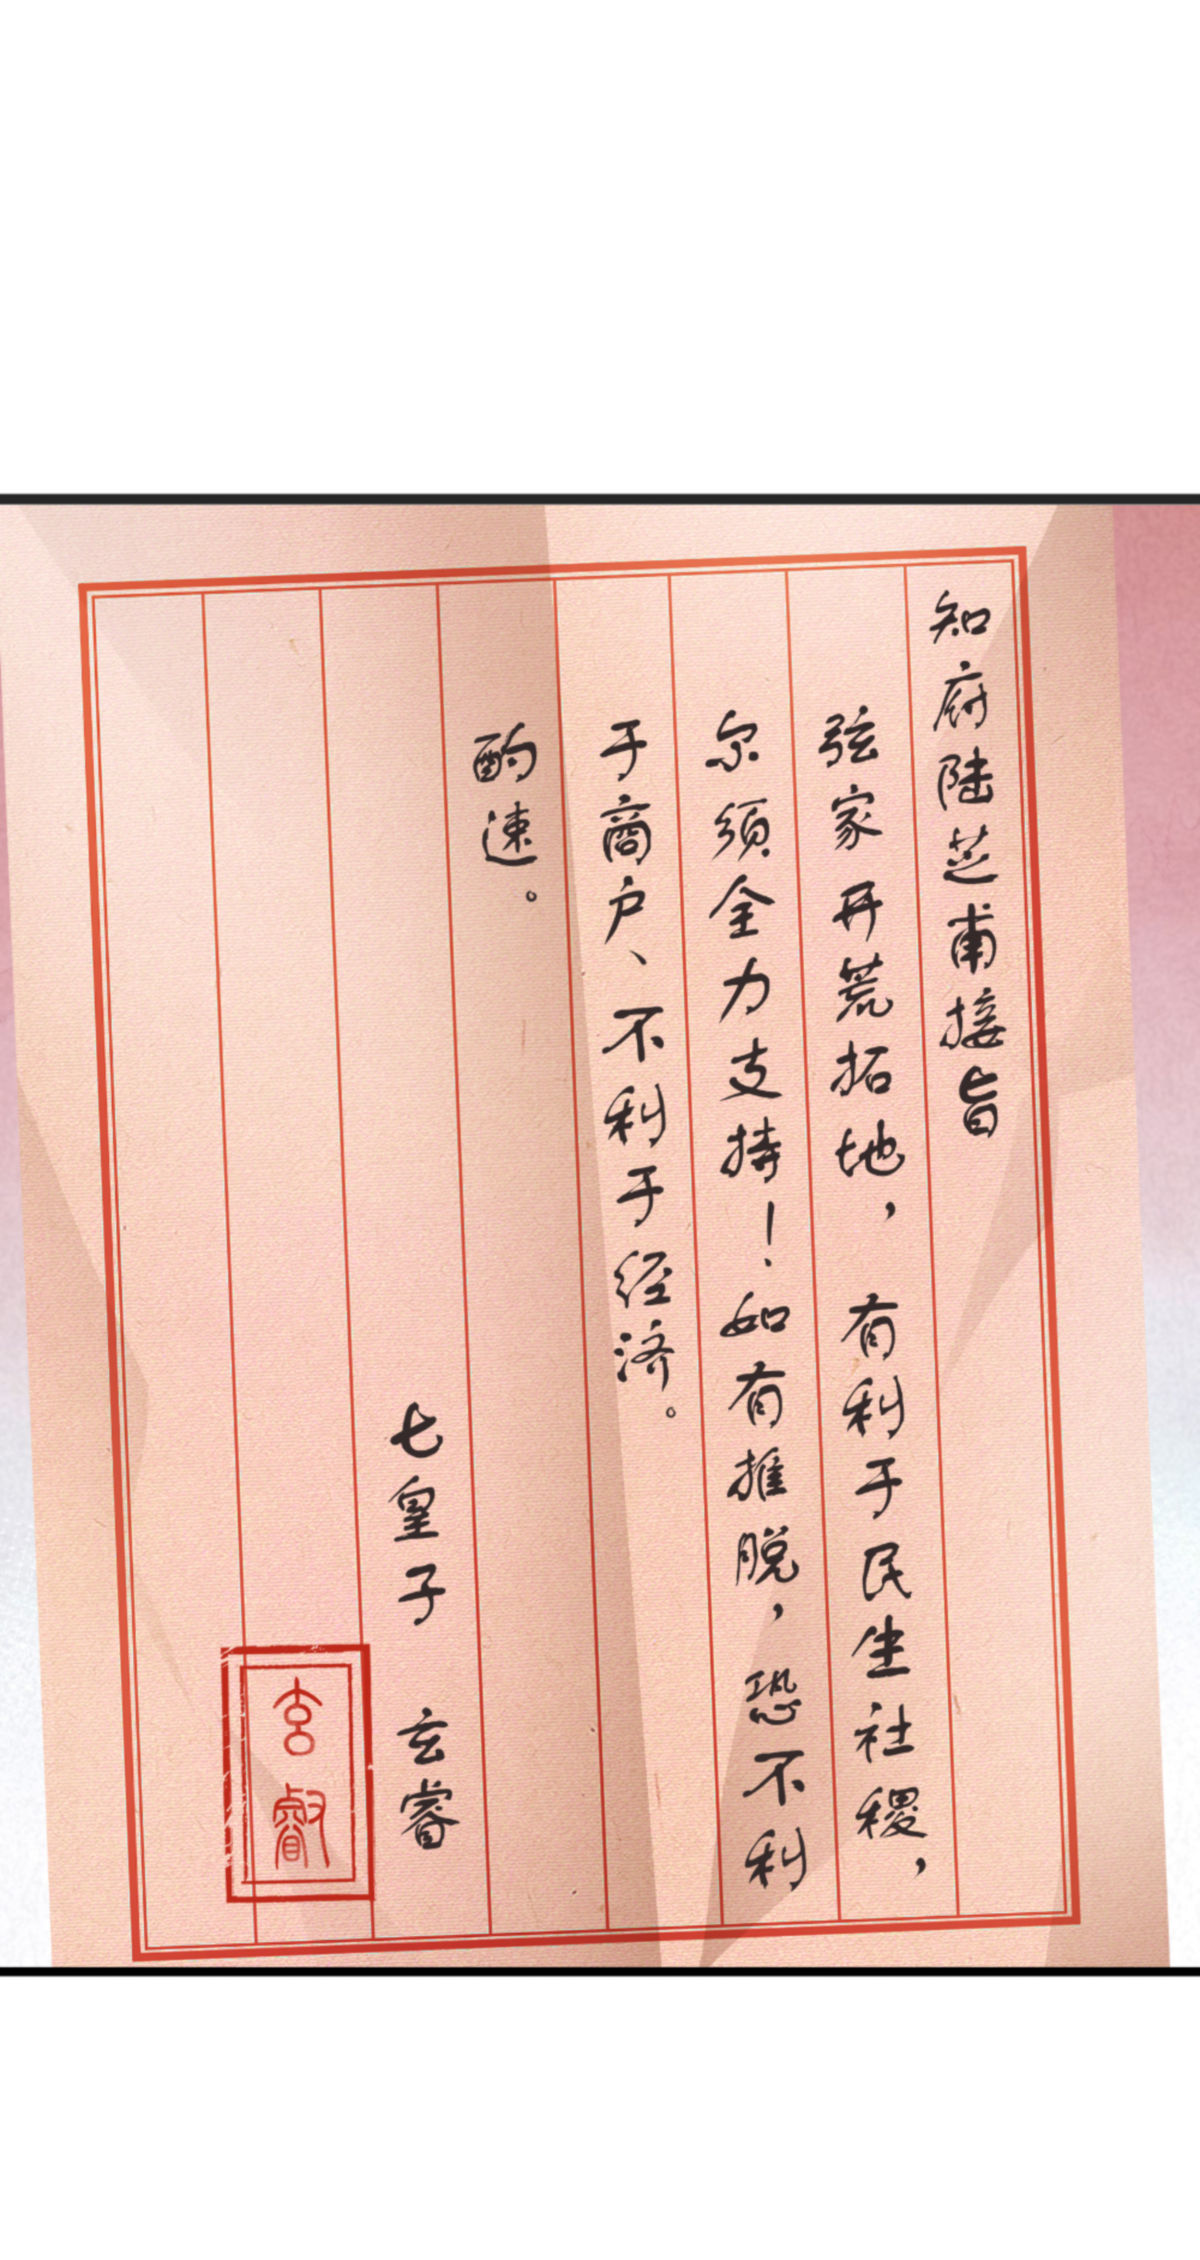 知府陆芝甫接旨
弦家开荒拓地，有利于民生社稷，
尔须全力支持！如有推脱，恐不利
于商户、不利于经济。
酌速。
七皇子 玄睿
玄叡